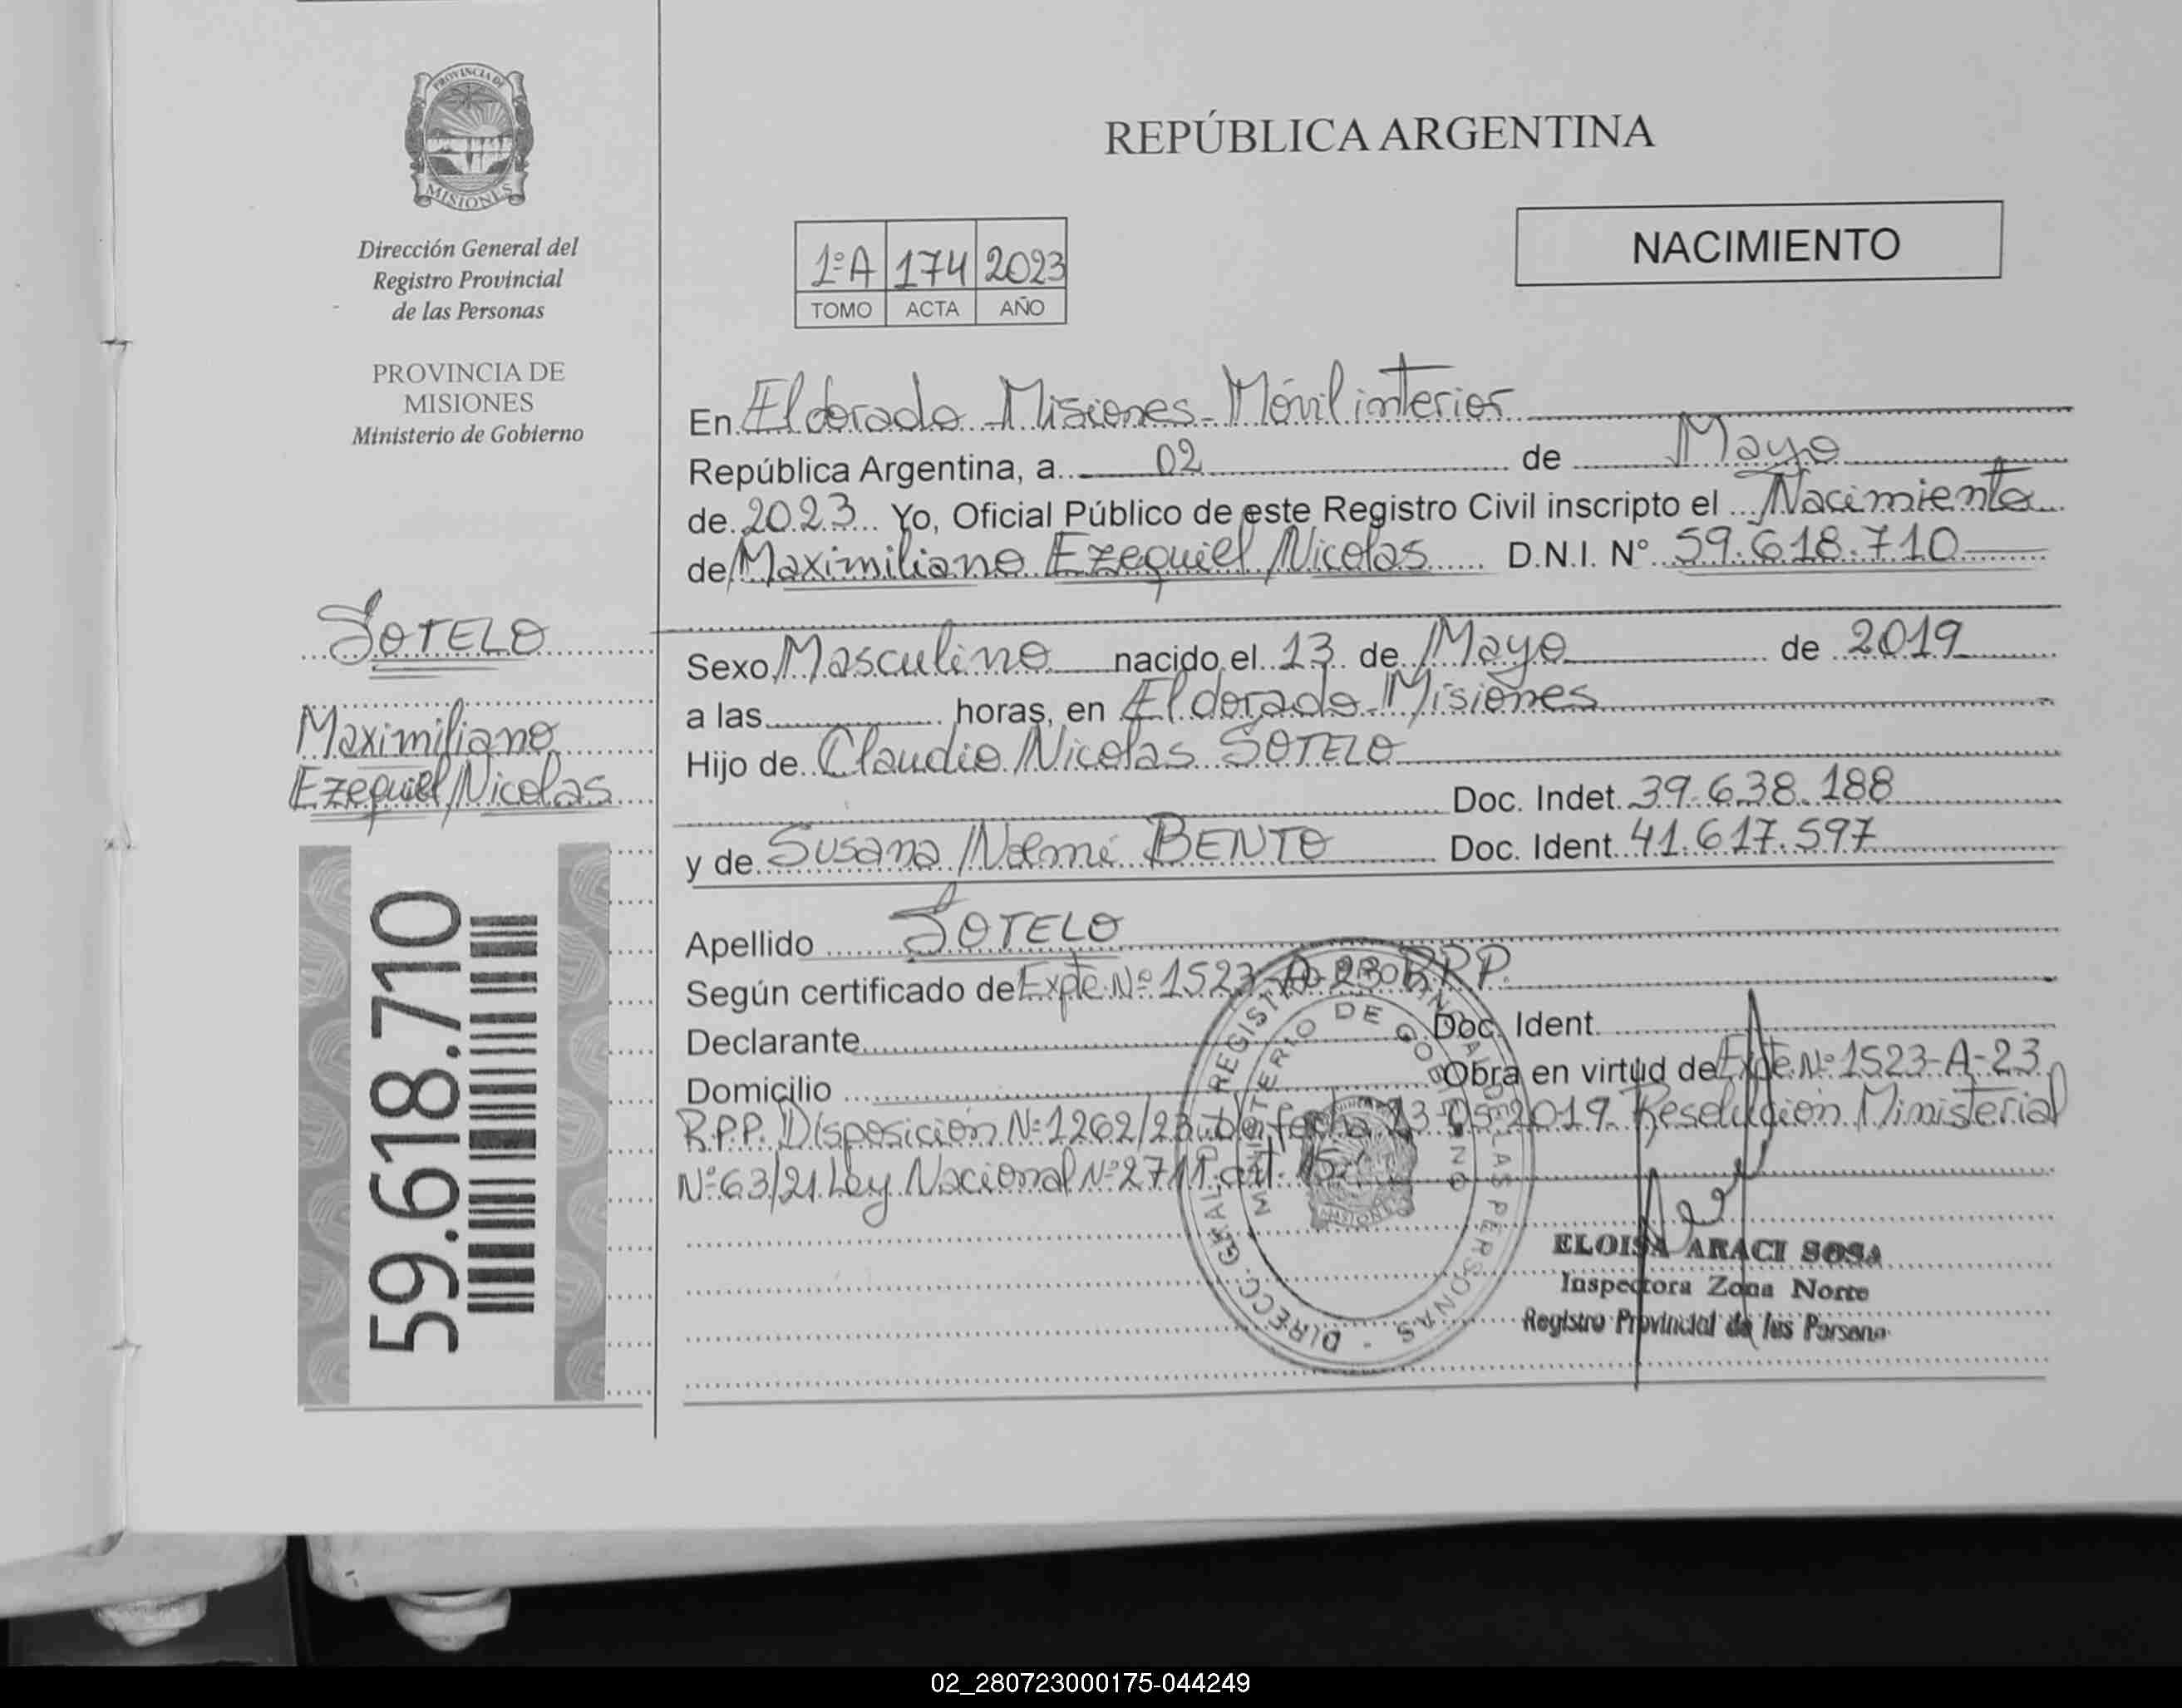 PROVINCIA DE
MISIONES
Dirección General del
Registro Provincial
de las Personas
PROVINCIA DE
MISIONES
Ministerio de Gobierno
SOTELO
Maximiliano
Ezequiel Nicolas
59.618.710
REPÚBLICA ARGENTINA
NACIMIENTO
1ºA 174 2023
TOMO ACTA AÑO
En Eldorado - Misiones - Móvil interior
República Argentina, a 02 de Mayo
de 2023 Yo, Oficial Público de este Registro Civil inscripto el Nacimiento
de Maximiliano Ezequiel Nicolas D.N.I. Nº 59.618.710
Sexo Masculino nacido el 13 de Mayo de 2019
a las horas, en Eldorado - Misiones
Hijo de Claudio Nicolas SOTELO
Doc. Indet. 39.638.188
y de Susana Noemi BENTO Doc. Ident. 41.617.597
Apellido SOTELO
Según certificado de Expte. Nº 1523-A-23 R.P.P.
Declarante Doc. Ident.
Domicilio Obra en virtud de Expte. Nº 1523-A-23
R.P.P. Disposición Nº 1262/23 de fecha 23-05-2019. Resolución Ministerial
Nº 63/21 Ley Nacional Nº 2711 art. 15
DIRECC. GRAL. DEL REGISTRO PROVINCIAL DE LAS PERSONAS
MINISTERIO DE GOBIERNO
MISIONES
ELOISA ARACI SOSA
Inspectora Zona Norte
Registro Provincial de las Persona
02_280723000175-044249